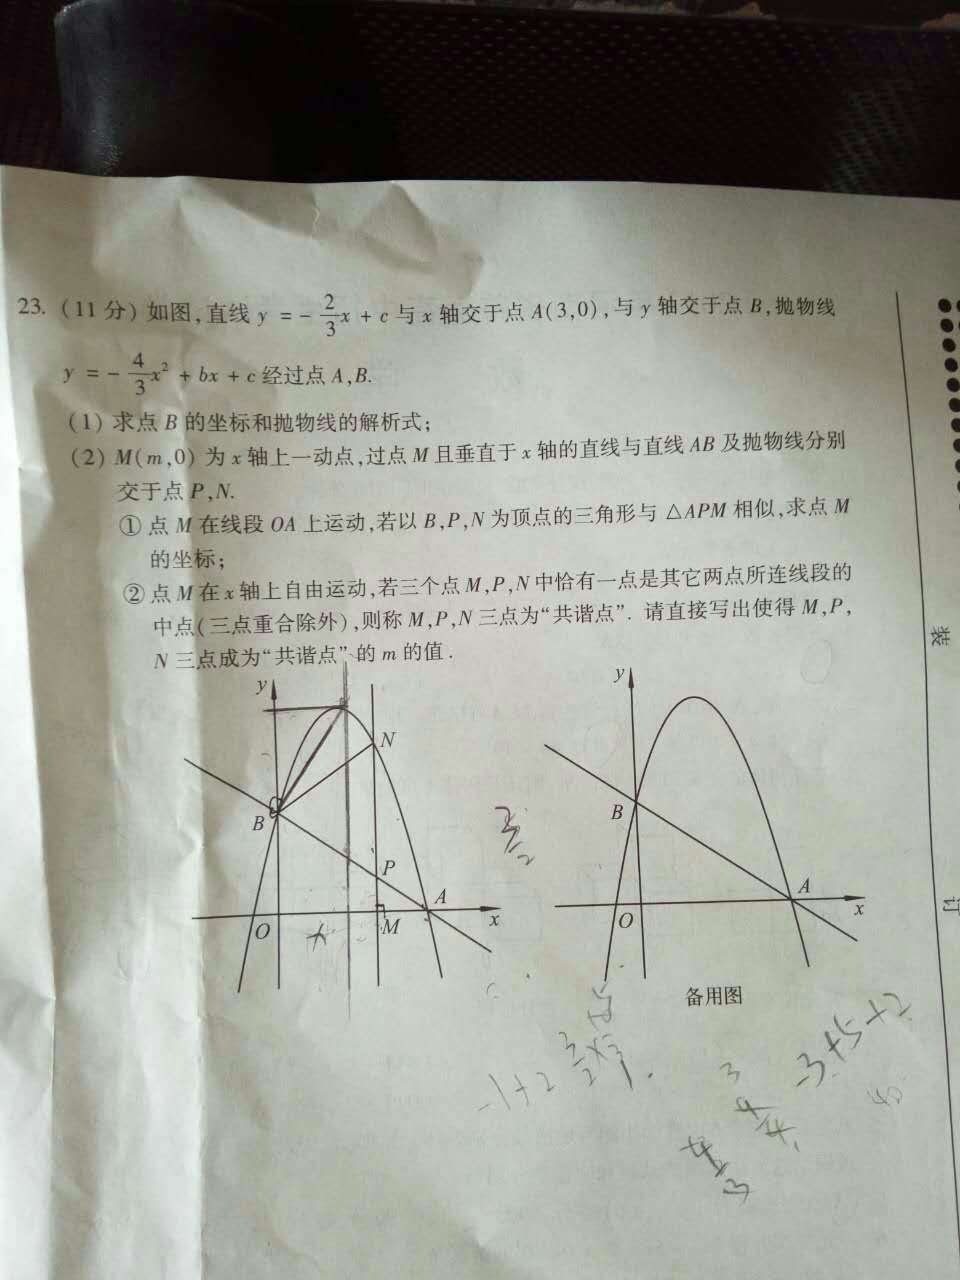 23. (11 分) 如图,直线 y = -2/3x + c 与 x 轴交于点 A(3,0),与 y 轴交于点 B,抛物线
y = -4/3x² + bx + c 经过点 A,B.
(1) 求点 B 的坐标和抛物线的解析式;
(2) M(m,0) 为 x 轴上一动点,过点 M 且垂直于 x 轴的直线与直线 AB 及抛物线分别
交于点 P,N.
① 点 M 在线段 OA 上运动,若以 B,P,N 为顶点的三角形与 △APM 相似,求点 M
的坐标;
② 点 M 在 x 轴上自由运动,若三个点 M,P,N 中恰有一点是其它两点所连线段的
中点(三点重合除外),则称 M,P,N 三点为“共谐点”. 请直接写出使得 M,P,
N 三点成为“共谐点”的 m 的值.
y
N
B
P
A
O
M
x
y
B
A
O
x
备用图
3/2
-1+2
-3+5+2
4/3
装
订